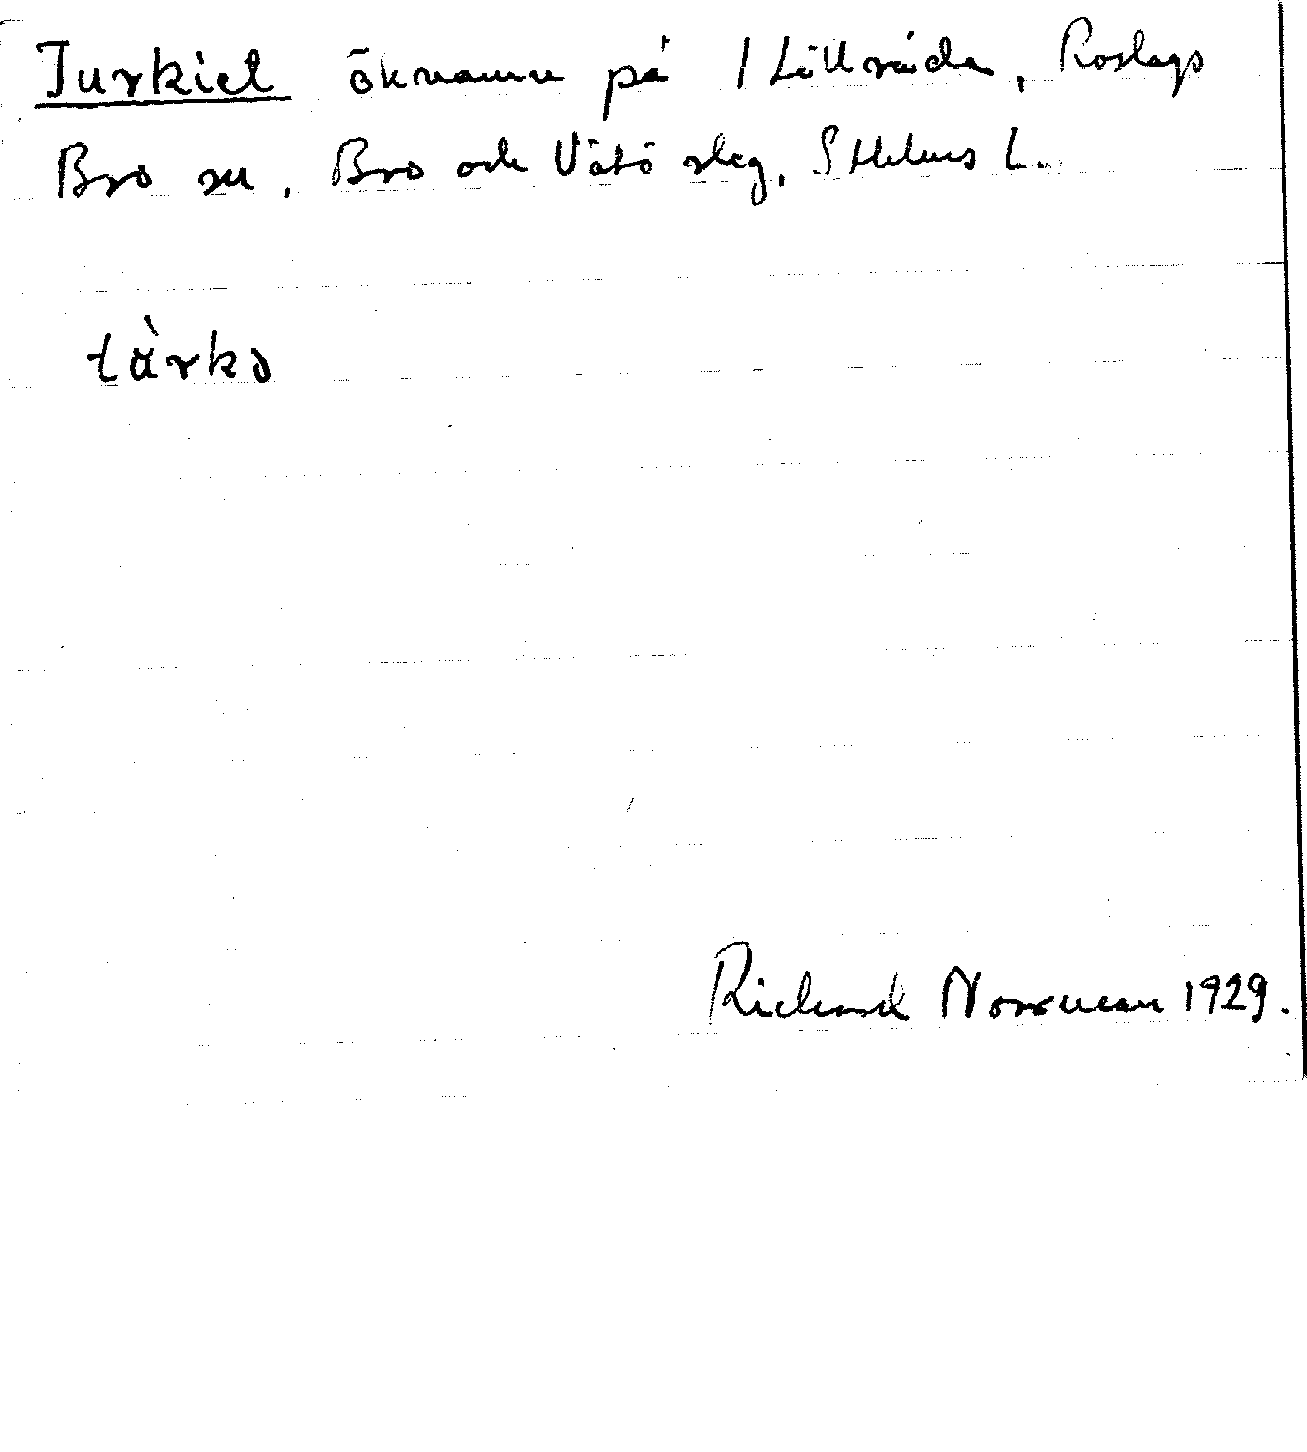 Turkiet öknamn på 1 Lillvreda, Roslags
Bro sn, Bro och Vätö slag, Sthlms L.
tàrkə
Richard Norrman 1929.